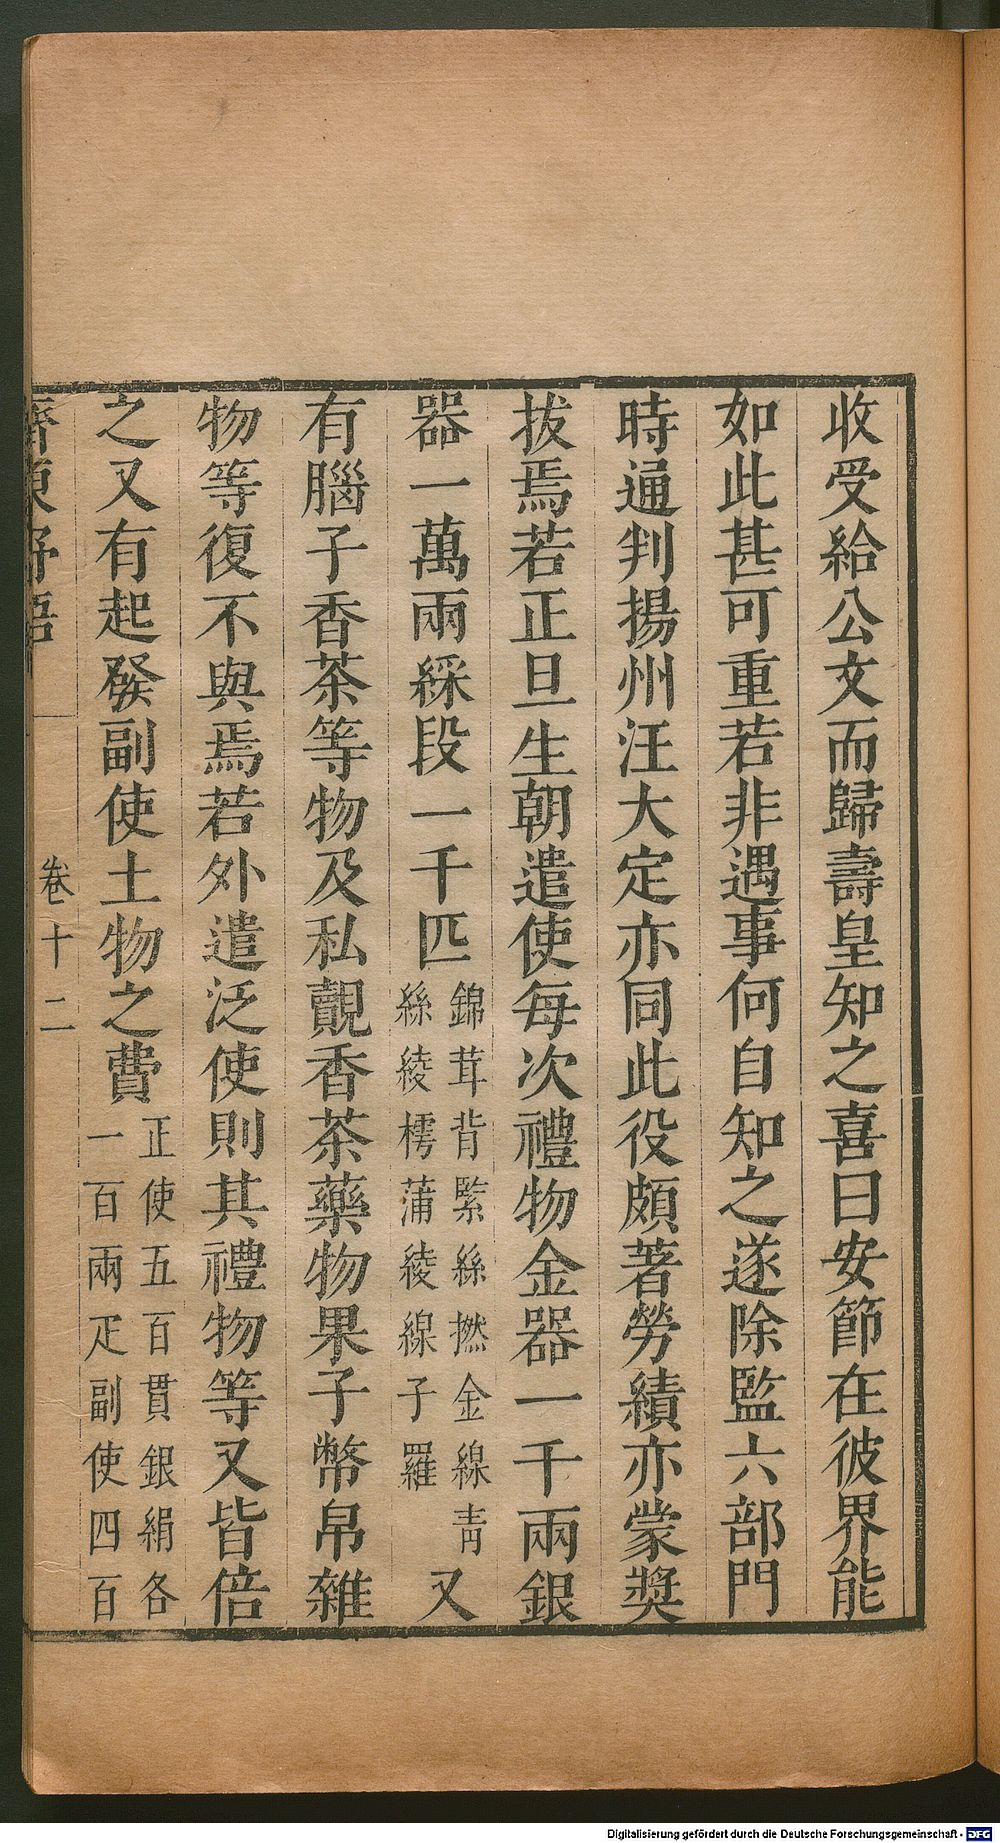 收受給公文而歸壽皇知之喜曰安節在彼界能
如此甚可重若非遇事何自知之遂除監六部門
時通判揚州汪大定亦同此役頗著勞績亦蒙獎
拔焉若正旦生朝遣使每次禮物金器一千兩銀
器一萬兩綵段一千匹錦茸背緊絲撚金線青絲綾樗蒲綾線子羅又
有腦子香茶等物及私覿香茶藥物果子幣帛雜
物等復不與焉若外遣泛使則其禮物等又皆倍
之又有起發副使土物之費正使五百貫銀絹各一百兩疋副使四百
齊東野語 卷十二
Digitalisierung gefördert durch die Deutsche Forschungsgemeinschaft - DFG